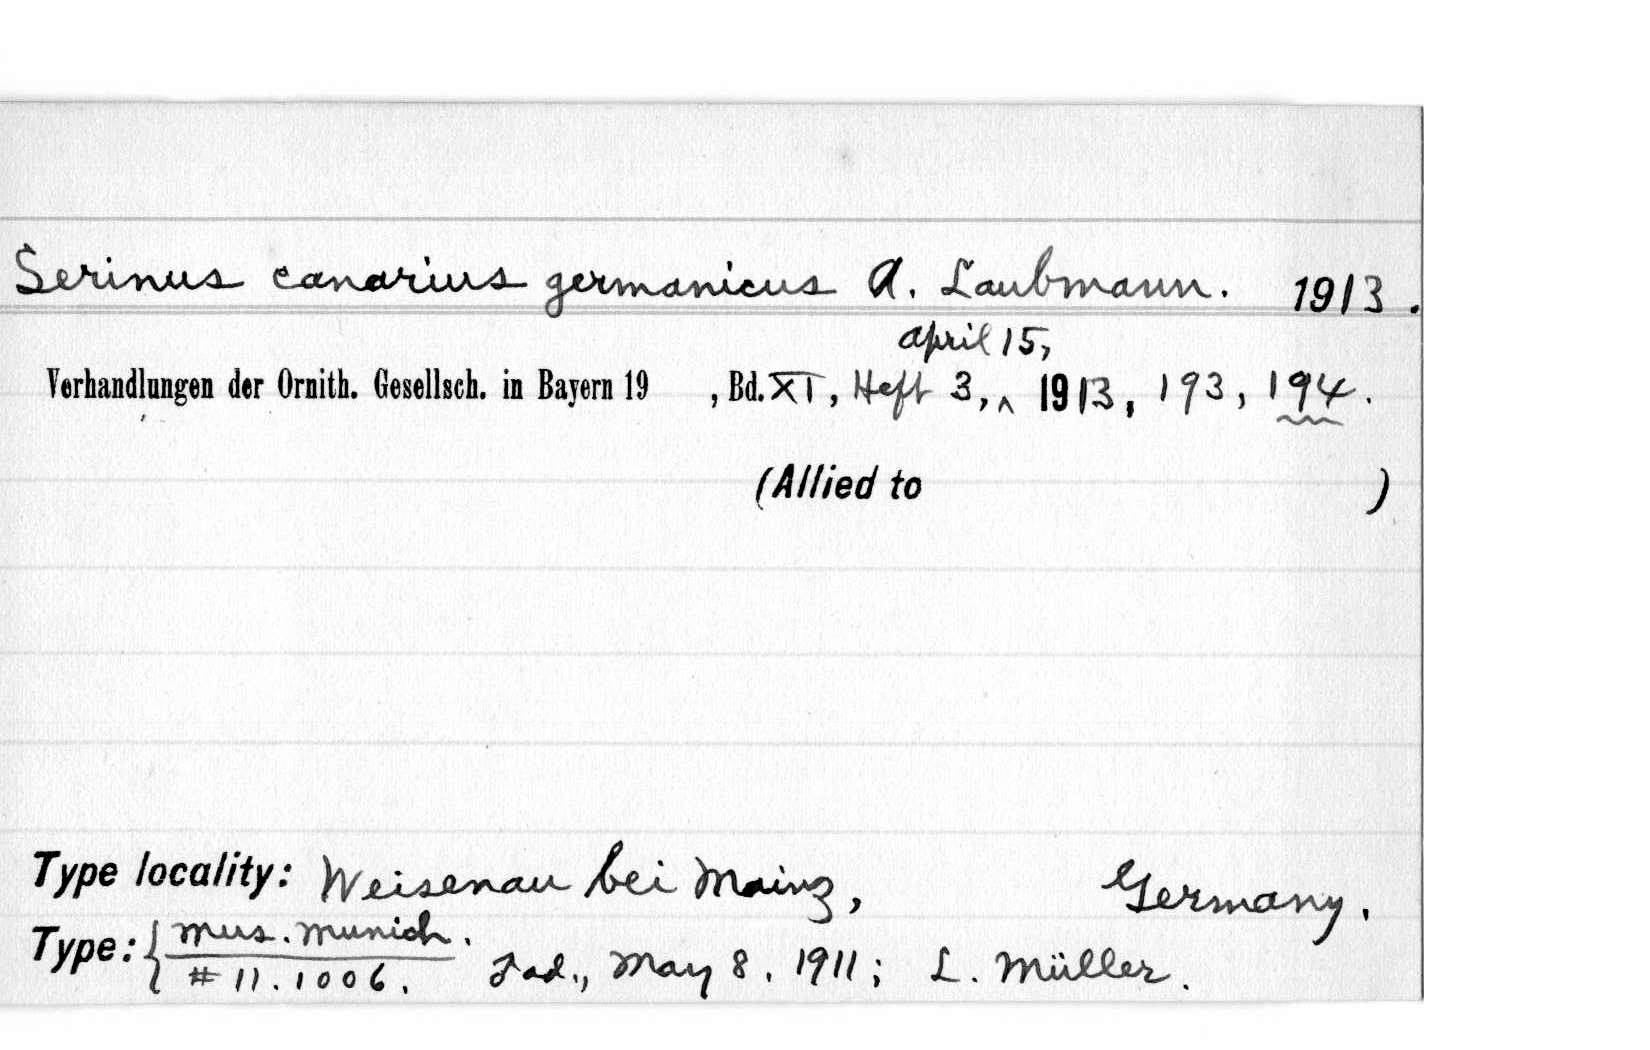 Serinus canarius germanicus A. Laubmann. 1913.
april 15,
Verhandlungen der Ornith. Gesellsch. in Bayern 19 , Bd. XI, Heft 3, ^ 1913, 193, 194.
(Allied to )
Type locality: Weisenau bei Mainz, Germany.
Type: { Mus. Munich.
# 11.1006. ad., May 8, 1911; L. Müller.